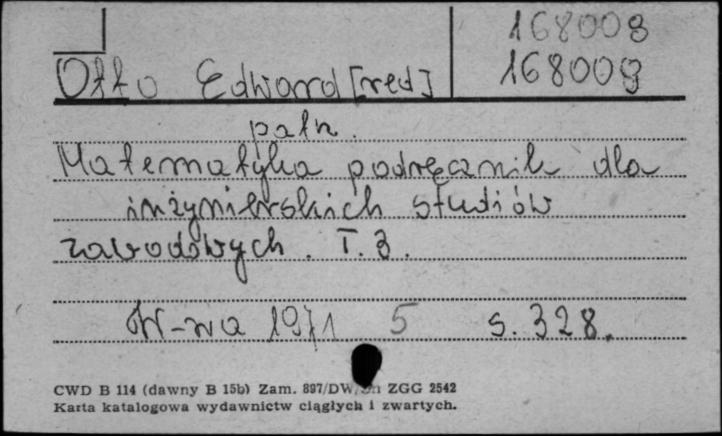 168008
Otto Edward [red] 168009
patrz.
Matematyka podręcznik dla
inżynierskich studiów
zawodowych. T. 3.
W-wa 1971 5 s. 328.
CWD B 114 (dawny B 15b) Zam. 897/DW/ ZGG 2542
Karta katalogowa wydawnictw ciągłych i zwartych.